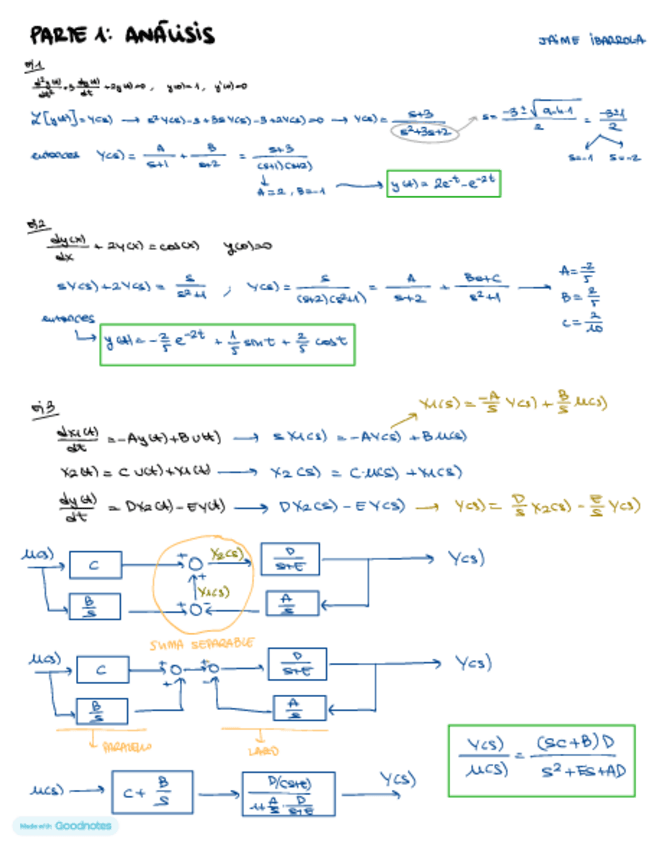 PARTE 1: ANÁLISIS
JAIME IBARROLA
ej1
d²y(t)/dt² + 3 dy(t)/dt + 2y(t)=0, y(0)=1, y'(0)=0
L[y(t)]=Y(s) → s²Y(s)-s+3sY(s)-3+2Y(s)=0 → Y(s)= (s+3)/(s²+3s+2) → s= (-3±√(9-4·1))/2 = (-3±1)/2
s=-1 s=-2
entonces Y(s)= A/(s+1) + B/(s+2) = (s+3)/((s+1)(s+2))
A=2, B=-1 → y(t)=2e^-t-e^-2t
ej2
dy(x)/dx + 2y(x)=cos(x) y(0)=0
sY(s)+2Y(s)= s/(s²+1) ; Y(s)= s/((s+2)(s²+1)) = A/(s+2) + (Bs+C)/(s²+1) → A=-2/5
B=2/5
C=2/10
entonces
y(t)=-2/5 e^-2t + 1/5 sin t + 2/5 cos t
ej3
X1(s)= -A/s Y(s)+ B/s U(s)
dx1(t)/dt =-Ay(t)+Bu(t) → sX1(s)=-AY(s)+BU(s)
x2(t)=Cu(t)+x1(t) → X2(s)=C·U(s)+X1(s)
dy(t)/dt = Dx2(t)-Ey(t) → DX2(s)-EY(s) → Y(s)= D/s X2(s)- E/s Y(s)
U(s) C + X2(s) D/(s+E) Y(s)
+
X1(s)
B/s + - A/s
SUMA SEPARABLE
U(s) C + + D/(s+E) Y(s)
+ -
B/s A/s
PARALELO LAZO
Y(s)/U(s) = (sC+B)D/(s²+Es+AD)
U(s) → C+ B/s → (D/(s+E))/(1+ A/s · D/(s+E)) → Y(s)
Made with Goodnotes